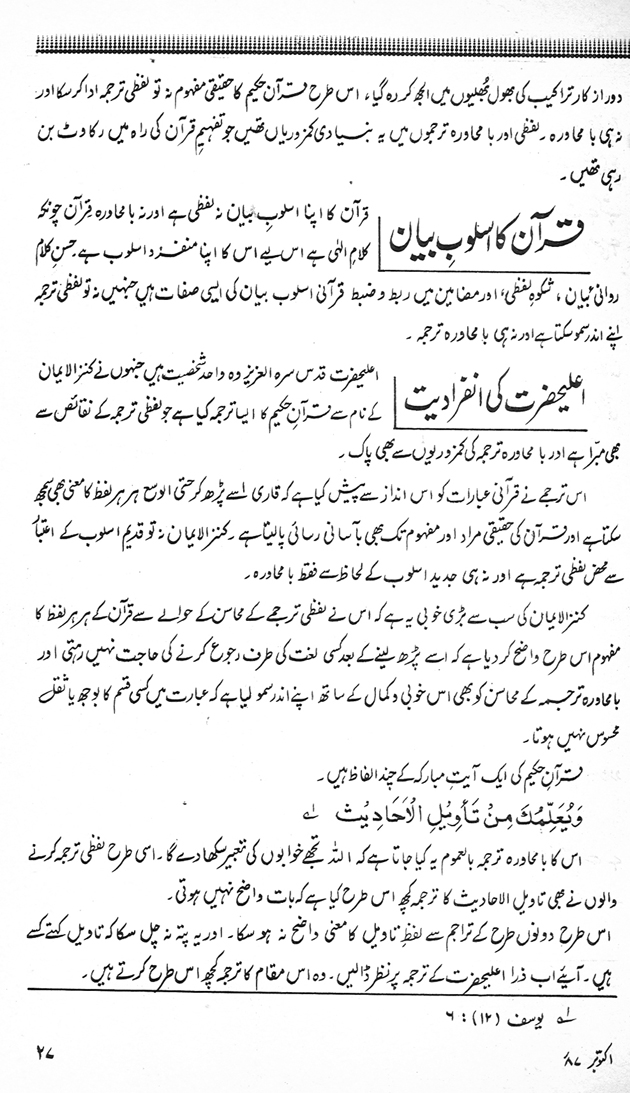 دور از کار تراکیب کی بھول بھلیوں میں الجھ کر رہ گیا، اس طرح قرآن حکیم کا حقیقی مفہوم نہ تو لفظی ترجمہ ادا کر سکا اور
نہ ہی با محاورہ ۔ لفظی اور با محاورہ ترجموں میں یہ بنیادی کمزوریاں تھیں جو تفہیمِ قرآن کی راہ میں رکاوٹ بن
رہی تھیں ۔
قرآن کا اسلوبِ بیان
قرآن کا اپنا اسلوبِ بیان نہ لفظی ہے اور نہ با محاورہ قرآن چونکہ
کلامِ الٰہی ہے اس لیے اس کا اپنا منفرد اسلوب ہے ۔ حسنِ کلام
روانیِ بیان ، شکوہِ لفظی، اور مضامین میں ربط و ضبط قرآنی اسلوب بیان کی ایسی صفات ہیں جنہیں نہ تو لفظی ترجمہ
اپنے اندر سمو سکتا ہے اور نہ ہی با محاورہ ترجمہ ۔
اعلیحضرت کی انفرادیت
اعلیحضرت قدس سرہ العزیز وہ واحد شخصیت ہیں جنہوں نے کنز الایمان
کے نام سے قرآنِ حکیم کا ایسا ترجمہ کیا ہے جو لفظی ترجمہ کے نقائص سے
بھی مبرّا ہے اور با محاورہ ترجمہ کی کمزوریوں سے بھی پاک ۔
اس ترجمے نے قرآنی عبارات کو اس انداز سے پیش کیا ہے کہ قاری اسے پڑھ کر حتی الوسع ہر ہر لفظ کا معنی بھی سمجھ
سکتا ہے اور قرآن کی حقیقی مراد اور مفہوم تک بھی بآسانی رسائی پا لیتا ہے ۔ کنز الایمان نہ تو قدیم اسلوب کے اعتبار
سے محض لفظی ترجمہ ہے اور نہ ہی جدید اسلوب کے لحاظ سے فقط با محاورہ ۔
کنز الایمان کی سب سے بڑی خوبی یہ ہے کہ اس نے لفظی ترجمے کے محاسن کے حوالے سے قرآن کے ہر ہر لفظ کا
مفہوم اس طرح واضح کر دیا ہے کہ اسے پڑھ لینے کے بعد کسی لغت کی طرف رجوع کرنے کی حاجت نہیں رہتی اور
با محاورہ ترجمہ کے محاسن کو بھی اس خوبی و کمال کے ساتھ اپنے اندر سمو لیا ہے کہ عبارت میں کسی قسم کا بوجھ یا ثقل
محسوس نہیں ہوتا ۔
قرآنِ حکیم کی ایک آیتِ مبارکہ کے چند الفاظ ہیں ۔
وَيُعَلِّمُكَ مِنْ تَأْوِيْلِ الْاَحَادِيْثِ ؎۱
اس کا با محاورہ ترجمہ بالعموم یہ کیا جاتا ہے کہ اللہ تجھے خوابوں کی تعبیر سکھا دے گا ۔ اسی طرح لفظی ترجمہ کرنے
والوں نے بھی تاویل الاحادیث کا ترجمہ کچھ اس طرح کیا ہے کہ بات واضح نہیں ہوتی ۔
اس طرح دونوں طرح کے تراجم سے لفظِ تاویل کا معنی واضح نہ ہو سکا ۔ اور یہ پتہ نہ چل سکا کہ تاویل کہتے کسے
ہیں ۔ آئیے اب ذرا اعلیحضرت کے ترجمہ پر نظر ڈالیں ۔ وہ اس مقام کا ترجمہ کچھ اس طرح کرتے ہیں ۔
؎۱ یوسف (۱۲) : ۶
اکتوبر ۸۷ء
۲۷